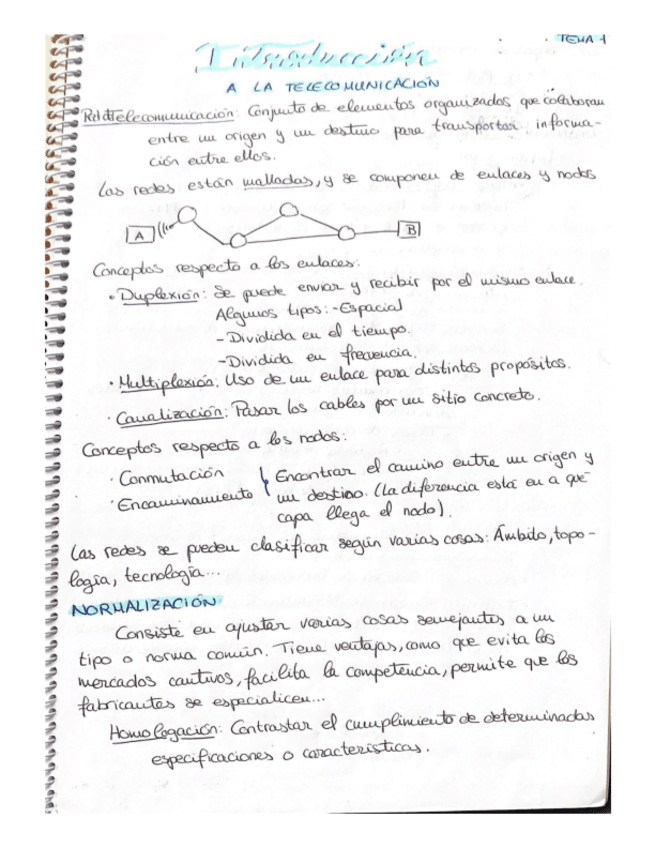 TEMA 1
Introducción
A LA TELECOMUNICACIÓN
Red de Telecomunicación: Conjunto de elementos organizados que colaboran
entre un origen y un destino para transportar informa-
ción entre ellos.
Las redes están malladas, y se componen de enlaces y nodos
A
B
Conceptos respecto a los enlaces:
• Duplexión: Se puede enviar y recibir por el mismo enlace.
Algunos tipos: - Espacial
- Dividida en el tiempo.
- Dividida en frecuencia.
• Multiplexión: Uso de un enlace para distintos propósitos.
• Canalización: Pasar los cables por un sitio concreto.
Conceptos respecto a los nodos:
• Conmutación
• Encaminamiento
Encontrar el camino entre un origen y
un destino. (La diferencia está en a qué
capa llega el nodo).
Las redes se pueden clasificar según varias cosas: Ámbito, topo-
logía, tecnología...
NORMALIZACIÓN
Consiste en ajustar varias cosas semejantes a un
tipo o norma común. Tiene ventajas, como que evita los
mercados cautivos, facilita la competencia, permite que los
fabricantes se especialicen...
Homologación: Contrastar el cumplimiento de determinadas
especificaciones o características.